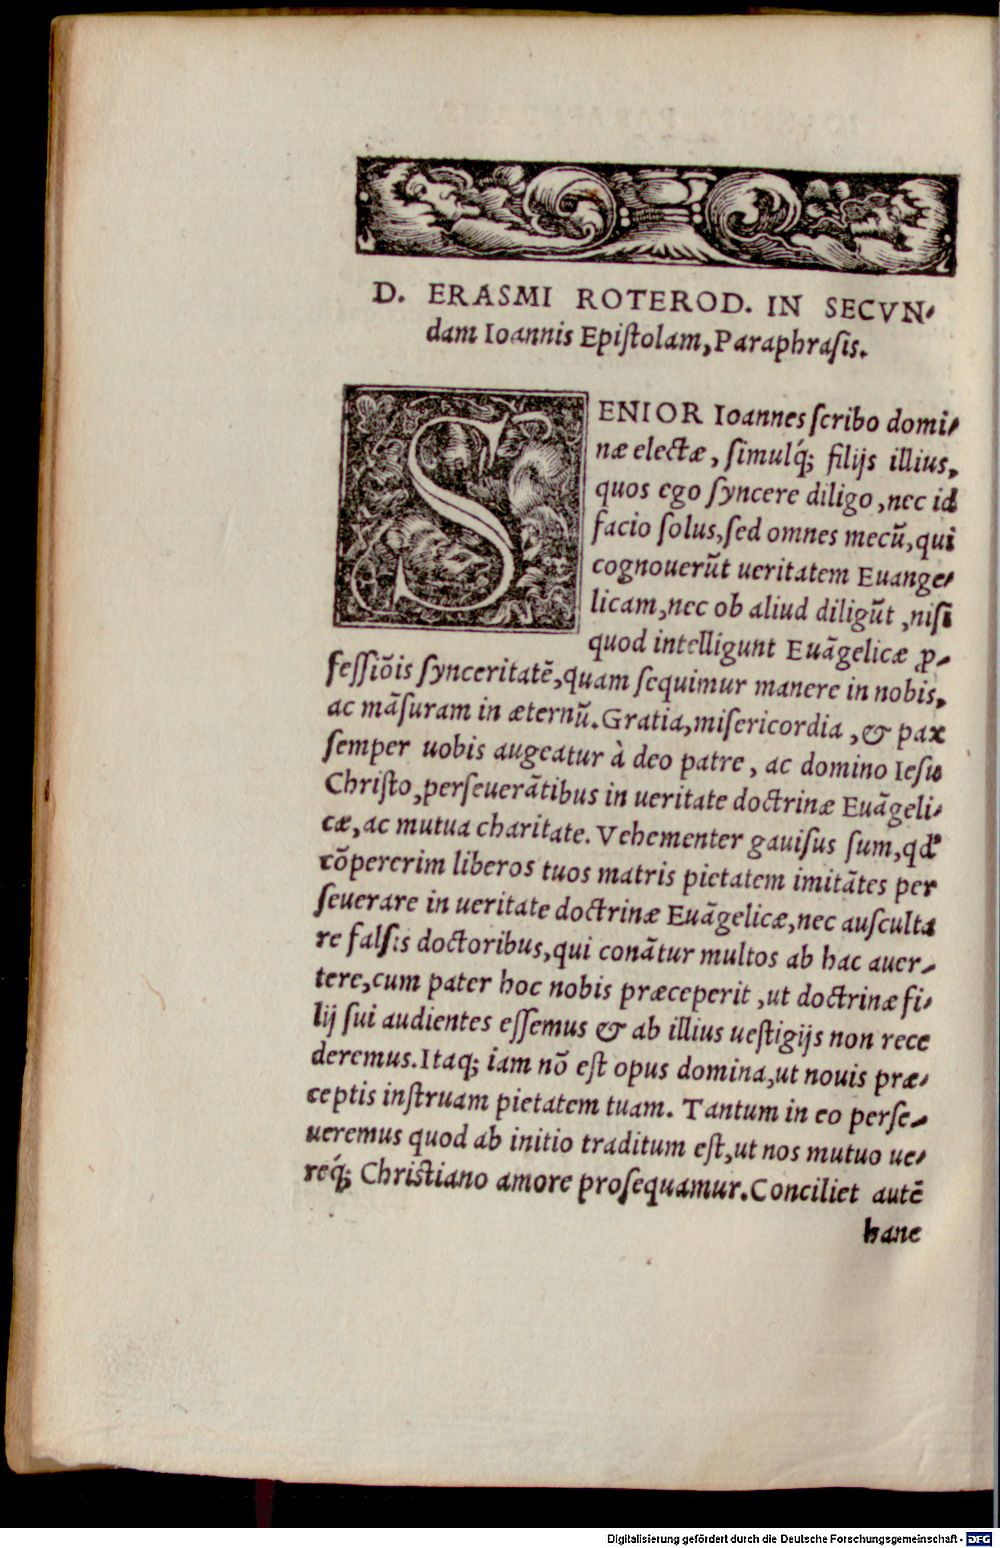 D. ERASMI ROTEROD. IN SECVN-
dam Ioannis Epiſtolam, Paraphraſis.
SENIOR Ioannes ſcribo domi-
næ electæ, ſimulq́; filijs illius,
quos ego ſyncere diligo, nec id
facio ſolus, ſed omnes mecũ, qui
cognouerũt ueritatem Euange-
licam, nec ob aliud diligũt, niſi
quod intelligunt Euãgelicæ ꝓ-
feſſiõis ſynceritatẽ, quam ſequimur manere in nobis,
ac mãſuram in æternũ. Gratia, miſericordia, & pax
ſemper uobis augeatur à deo patre, ac domino Ieſu
Chriſto, perſeuerãtibus in ueritate doctrinæ Euãgeli-
cæ, ac mutua charitate. Vehementer gauiſus ſum, qđ
cõpererim liberos tuos matris pietatem imitãtes per
ſeuerare in ueritate doctrinæ Euãgelicæ, nec auſculta
re falſis doctoribus, qui conãtur multos ab hac auer-
tere, cum pater hoc nobis præceperit, ut doctrinæ fi-
lij ſui audientes eſſemus & ab illius ueſtigijs non rece
deremus. Itaq; iam nõ eſt opus domina, ut nouis præ-
ceptis inſtruam pietatem tuam. Tantum in eo perſe-
ueremus quod ab initio traditum eſt, ut nos mutuo ue-
req́; Chriſtiano amore proſequamur. Conciliet autẽ
hanc
Digitalisierung gefördert durch die Deutsche Forschungsgemeinschaft - DFG